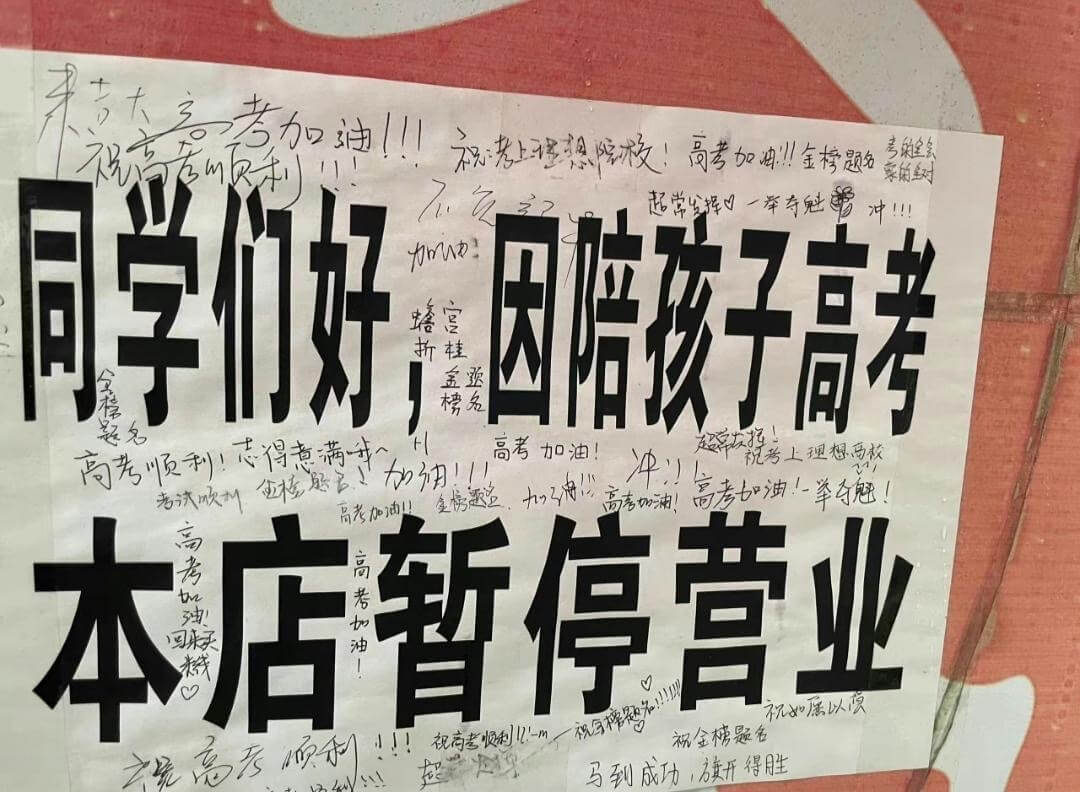 来吉大
高考加油!!!
祝高考顺利!!!
祝:考上理想院校!
高考加油!!!
金榜题名
考的全会
蒙的全对
超常发挥♡
一举夺魁
冲!!!
加油!
同学们好，因陪孩子高考
蟾宫
折桂
金榜
题名
金榜题名
高考顺利!
志得意满哦~
加油!!!
高考加油!
冲!!!
超常发挥!
祝考上理想高校
考试顺利
金榜题名!
高考加油!!
金榜题名
加油!!!
高考加油!
高考加油!一举夺魁!
本店暂停营业
高考加油!
高考加油!
♡
祝高考顺利!!!
祝高考顺利!!!
祝金榜题名!!!!!!
祝如愿以偿
祝金榜题名
马到成功,旗开得胜